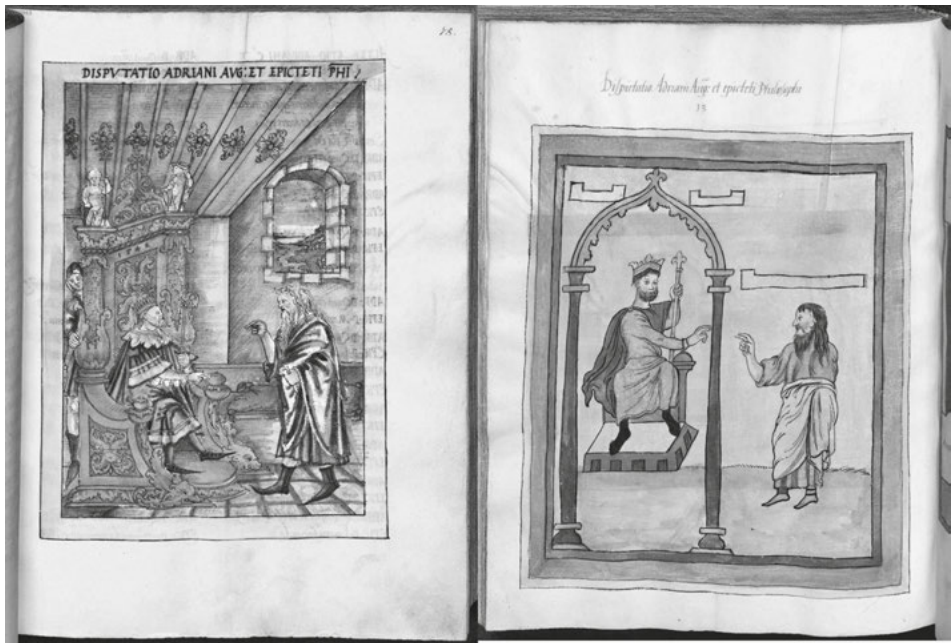 28.
DISPVTATIO ADRIANI AVG: ET EPICTETI P̅H̅I̅
Disputatio Adriani Aug: et epicteti Philosophi
13